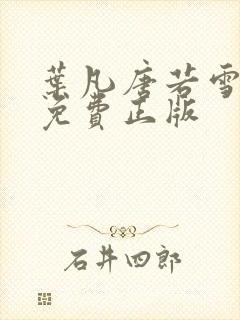 葉凡唐若雪
免費正版
石井四郎